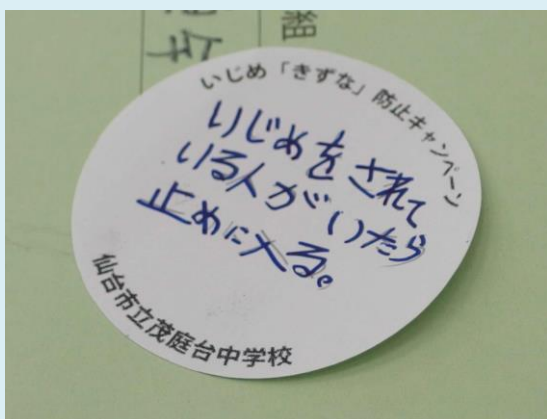 組
年
いじめ「きずな」防止キャンペーン
いじめをされて
いる人がいたら
止めに入る。
仙台市立茂庭台中学校